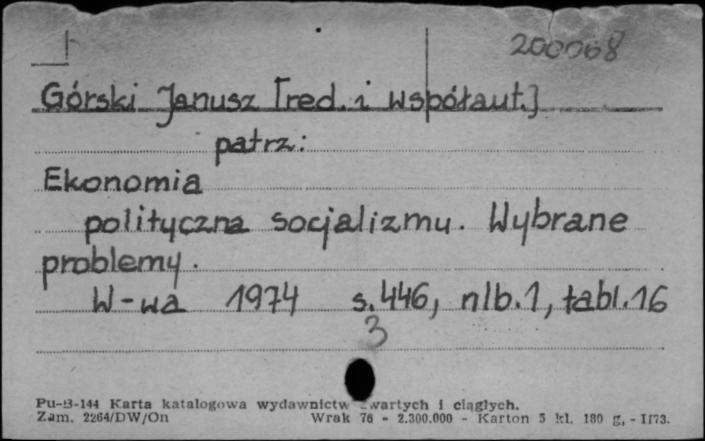 200068
Górski Janusz [red. i współaut.]
patrz:
Ekonomia
polityczna socjalizmu. Wybrane
problemy.
W-wa 1974 s.446, nlb.1, tabl.16
3
Pu-B-144 Karta katalogowa wydawnictw zwartych i ciągłych.
Zam. 2264/DW/On Wrak 76 - 2.300.000 - Karton 5 kl. 180 g, - II73.